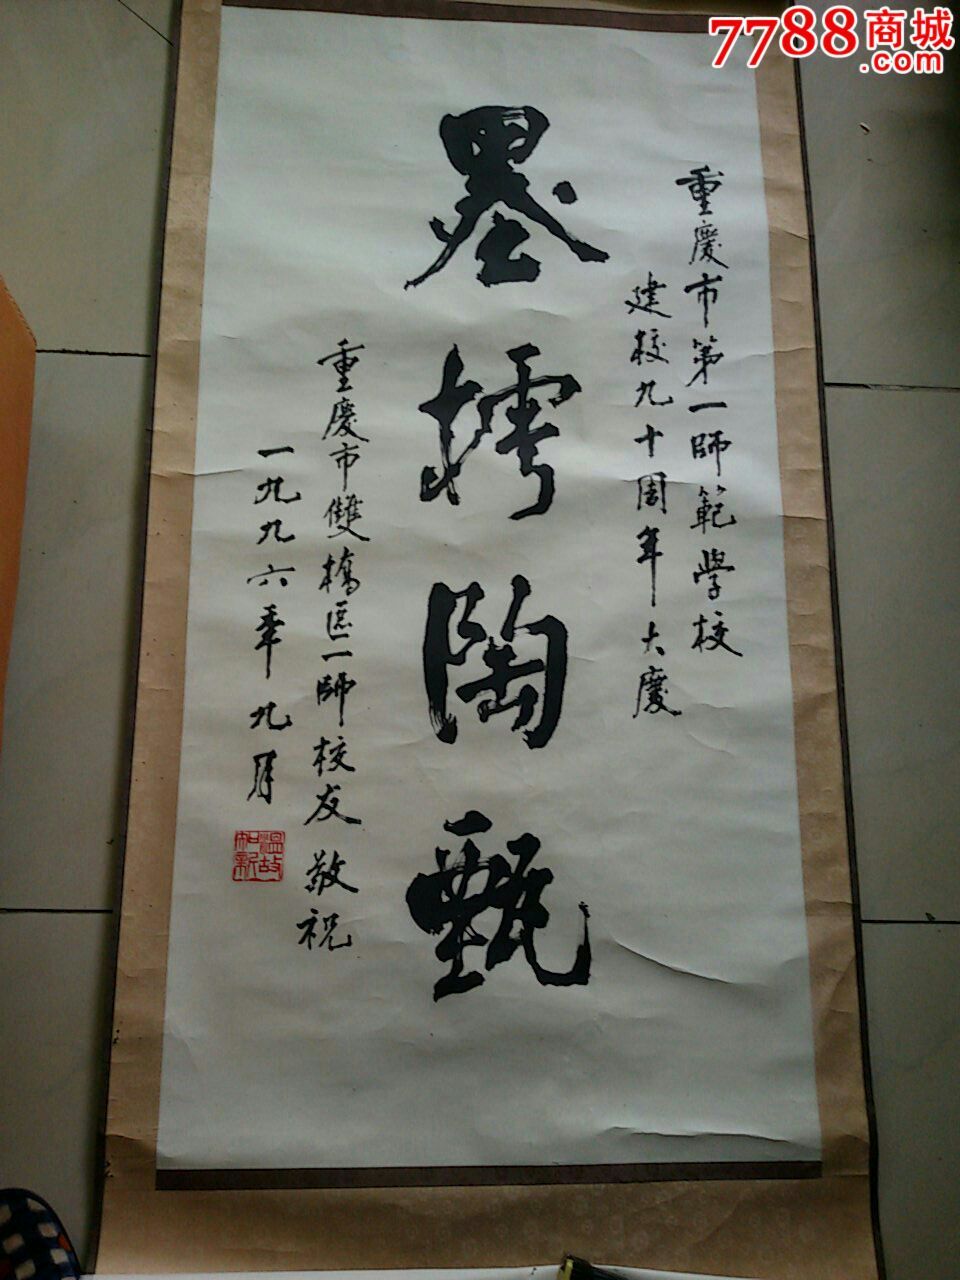 7788商城
.com
重慶市第一師範學校
建校九十周年大慶
墨摴陶甄
重慶市雙橋區一師校友 敬祝
一九九六年九月
溫故
知新